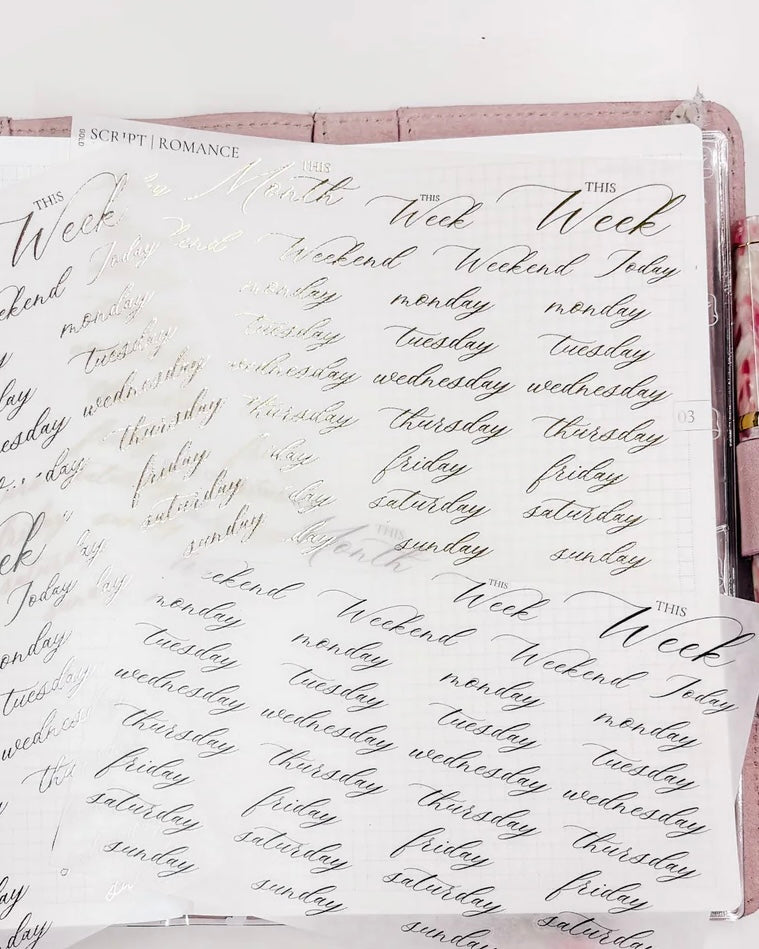 GOLD
SCRIPT | ROMANCE
THIS
Month
THIS
Week
THIS
Week
THIS
Week
Today
Weekend
Weekend
Today
monday
monday
monday
monday
tuesday
tuesday
tuesday
tuesday
wednesday
wednesday
wednesday
wednesday
thursday
thursday
thursday
thursday
03
friday
friday
friday
saturday
saturday
saturday
sunday
sunday
sunday
THIS
Month
THIS
Week
THIS
Week
Today
Weekend
Weekend
Today
monday
monday
monday
monday
tuesday
tuesday
tuesday
tuesday
tuesday
wednesday
wednesday
wednesday
wednesday
thursday
thursday
thursday
thursday
friday
friday
friday
friday
saturday
saturday
saturday
saturday
sunday
sunday
sunday